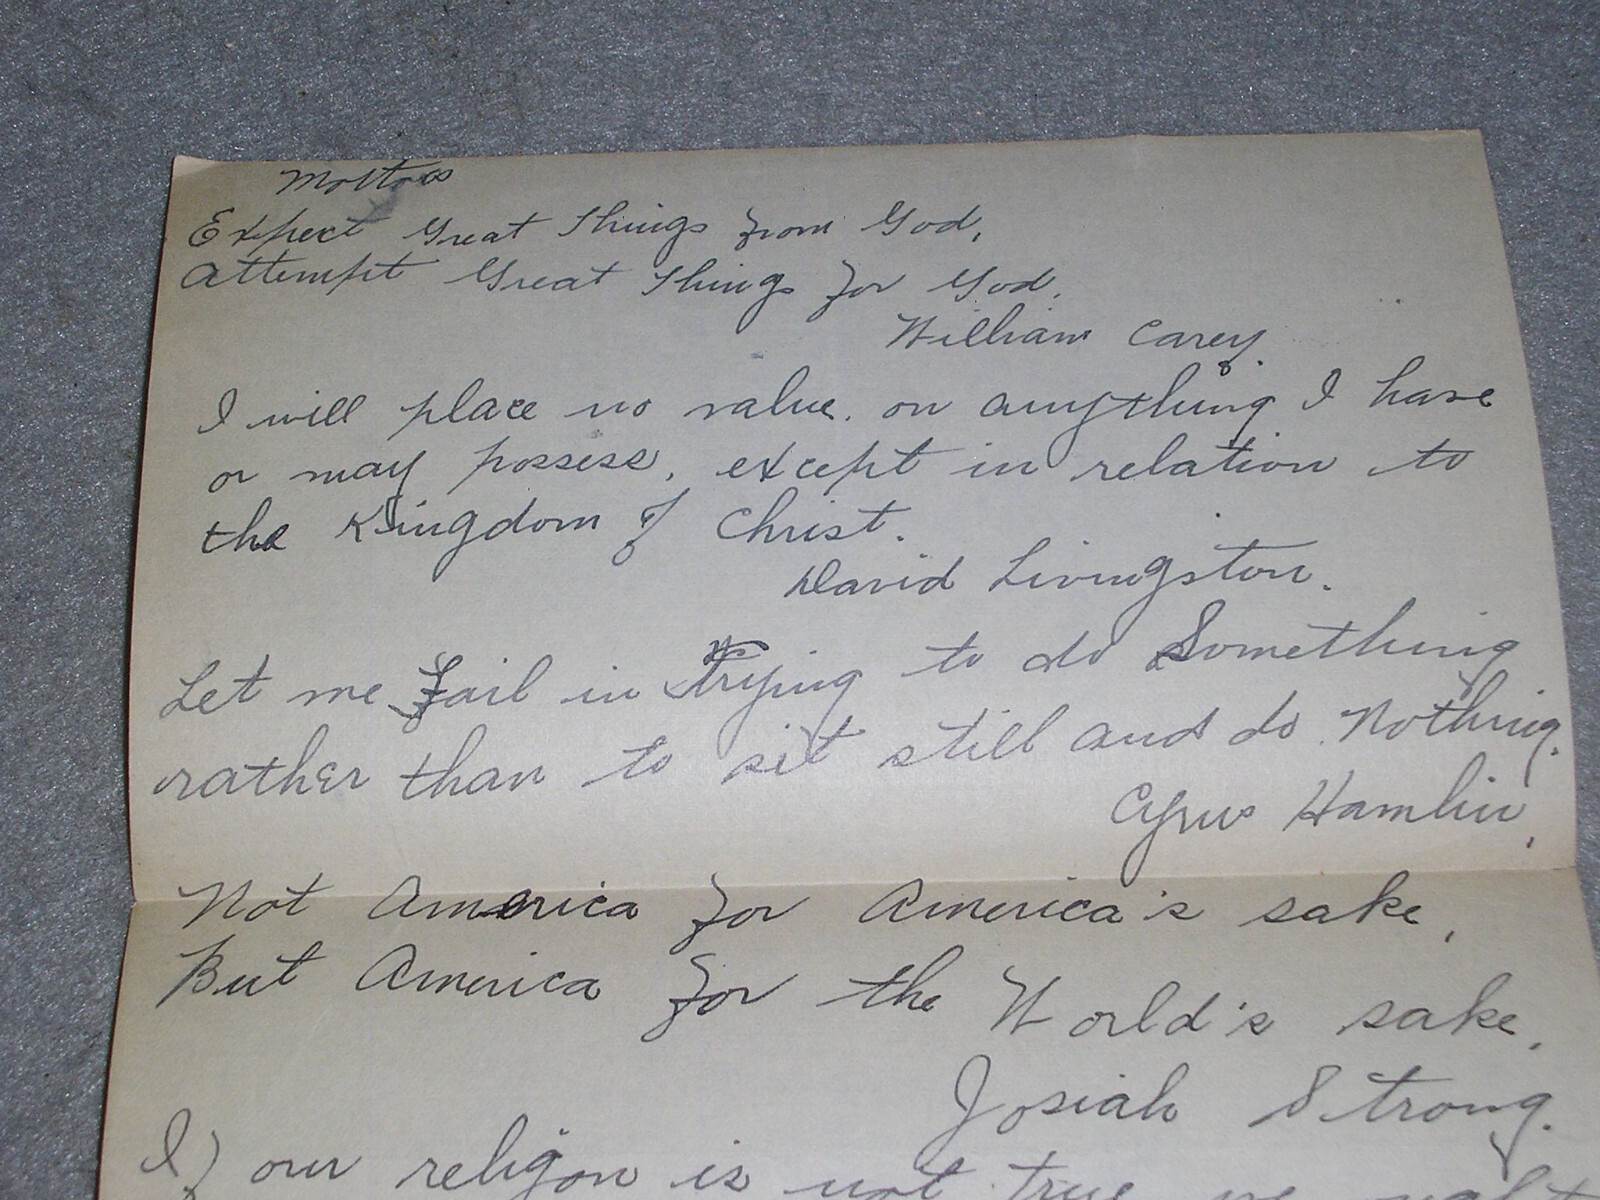 Mottoes
Expect Great Things from God,
Attempt Great Things for God.
William Carey.
I will place no value on anything I have
or may possess, except in relation to
the Kingdom of Christ.
David Livingston.
Let me fail in trying to do Something
rather than to sit still and do Nothing.
Cyrus Hamlin.
Not America for America's sake,
But America for the World's sake.
Josiah Strong.
If our religion is not true we